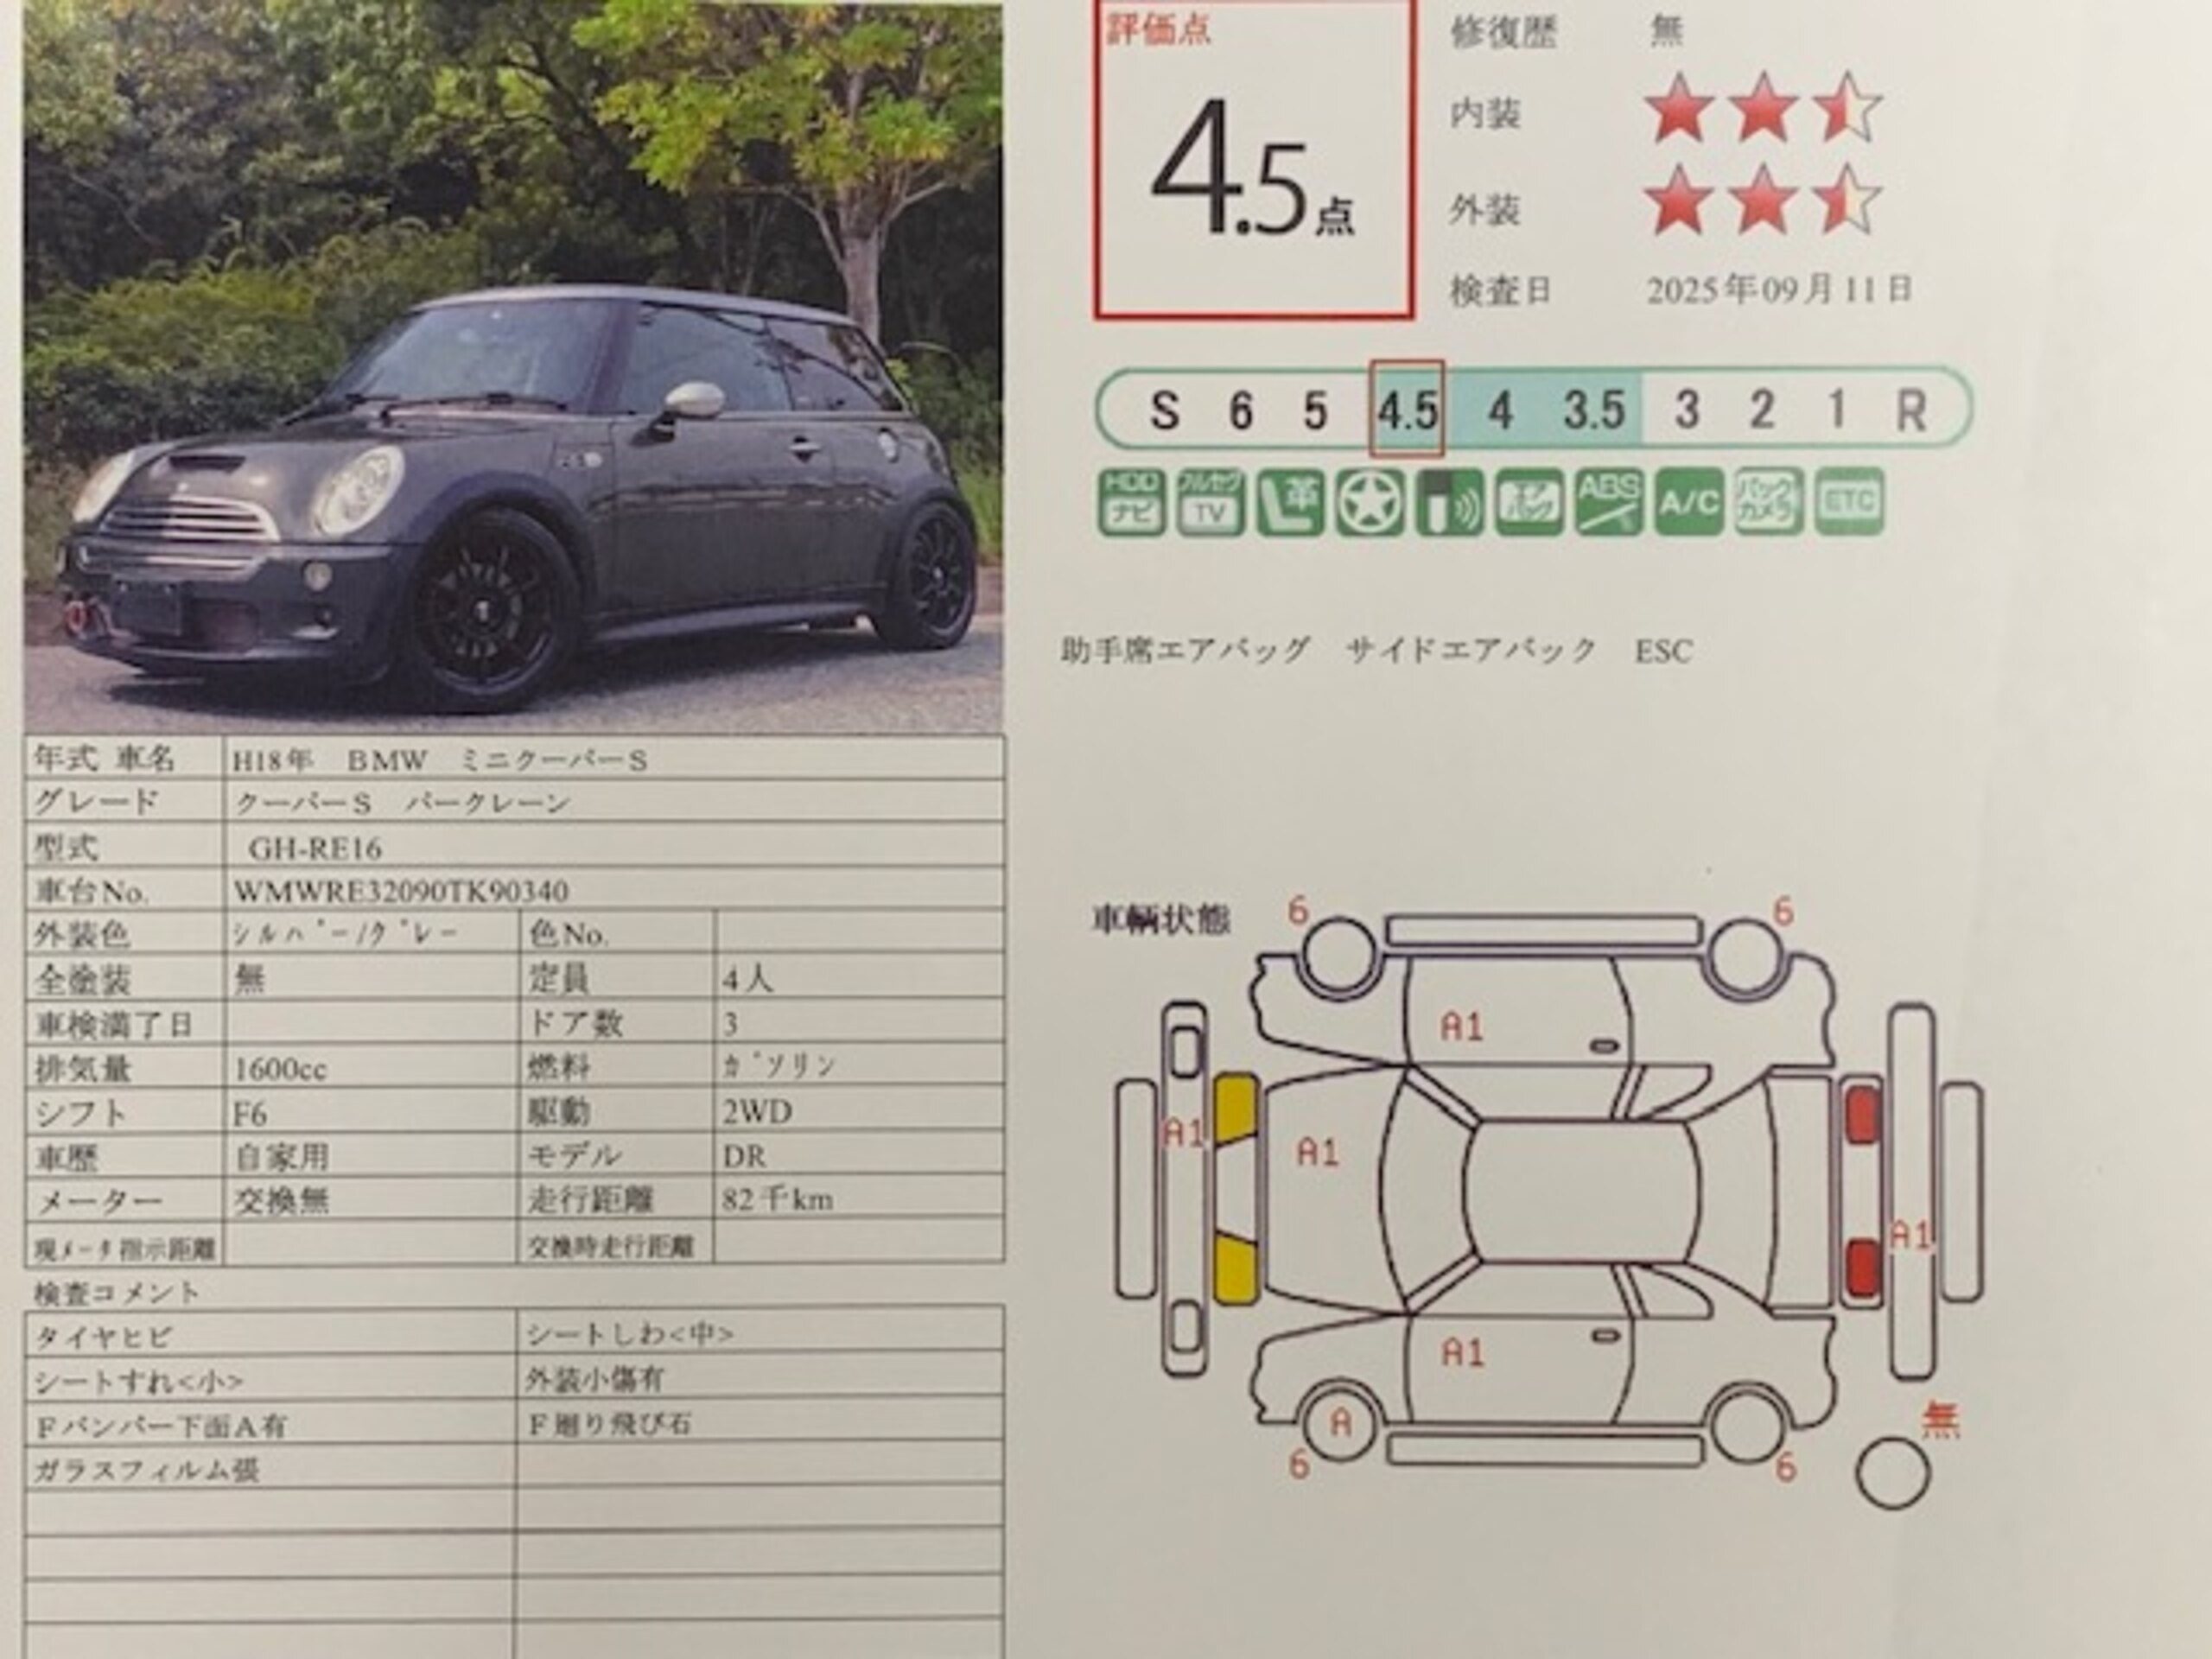 評価点
4.5点
修復歴 無
内装
外装
検査日 2025年09月11日
S 6 5 4.5 4 3.5 3 2 1 R
HDDナビ フルセグTV 革 エアバック ABS A/C バックカメラ ETC
助手席エアバッグ サイドエアバック ESC
年式 車名 H18年 BMW ミニクーパーS
グレード クーパーS パークレーン
型式 GH-RE16
車台No. WMWRE32090TK90340
外装色 シルバー/グレー 色No.
全塗装 無 定員 4人
車検満了日 ドア数 3
排気量 1600cc 燃料 ガソリン
シフト F6 駆動 2WD
車歴 自家用 モデル DR
メーター 交換無 走行距離 82千km
現メータ指示距離 交換時走行距離
検査コメント
タイヤヒビ シートしわ<中>
シートすれ<小> 外装小傷有
Fバンパー下面A有 F廻り飛び石
ガラスフィルム張
車輌状態
6 6
A1
A1 A1
A1
A1
A
6 6
無